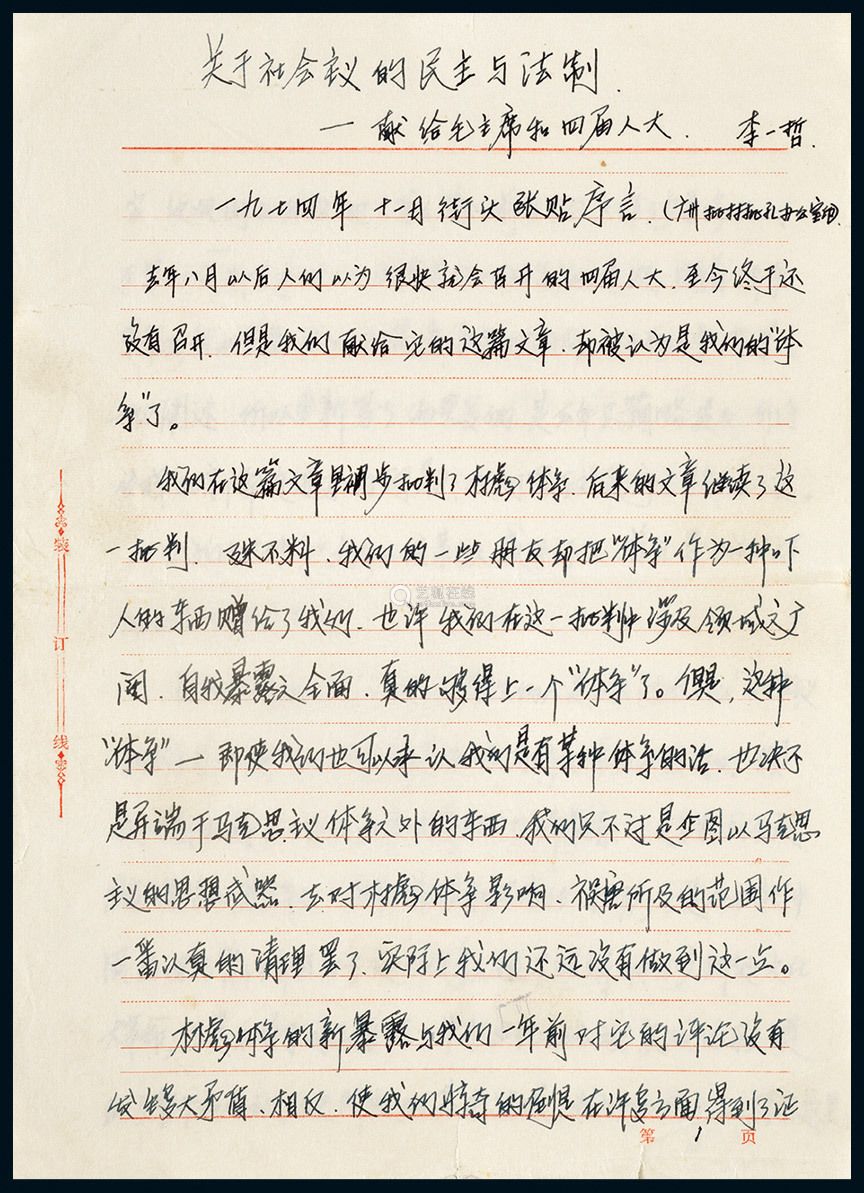 关于社会主义的民主与法制.
一献给毛主席和四届人大. 李一哲.
一九七四年十一月街头张贴序言.(广州批林批孔办公室印)
去年八月以后人们以为很快就会召开的四届人大.至今终于还
没有召开.但是我们献给它的这篇文章.却被认为是我们的"体
系"了。
我们在这篇文章里初步批判了林彪体系.后来的文章继续了这
一批判.殊不料、我们的一些朋友却把"体系"作为一种吓
人的东西赠给了我们.也许我们在这一批判中涉及领域之广
阔.自我暴露之全面.真的够得上一个"体系"了。但是,这种
"体系"一即使我们也可以承认我们是有某种体系的话.也决不
是异端于马克思主义体系之外的东西.我们只不过是企图以马克思
主义的思想武器.去对林彪体系影响、祸害所及的范围作
一番认真的清理罢了.实际上我们还远没有做到这一点。
林彪体系的新暴露与我们一年前对它的评论没有
发生多大矛盾、相反.使我们惊奇的倒是在许多方面得到了证
装
订
线
第 1 页
艺观在线